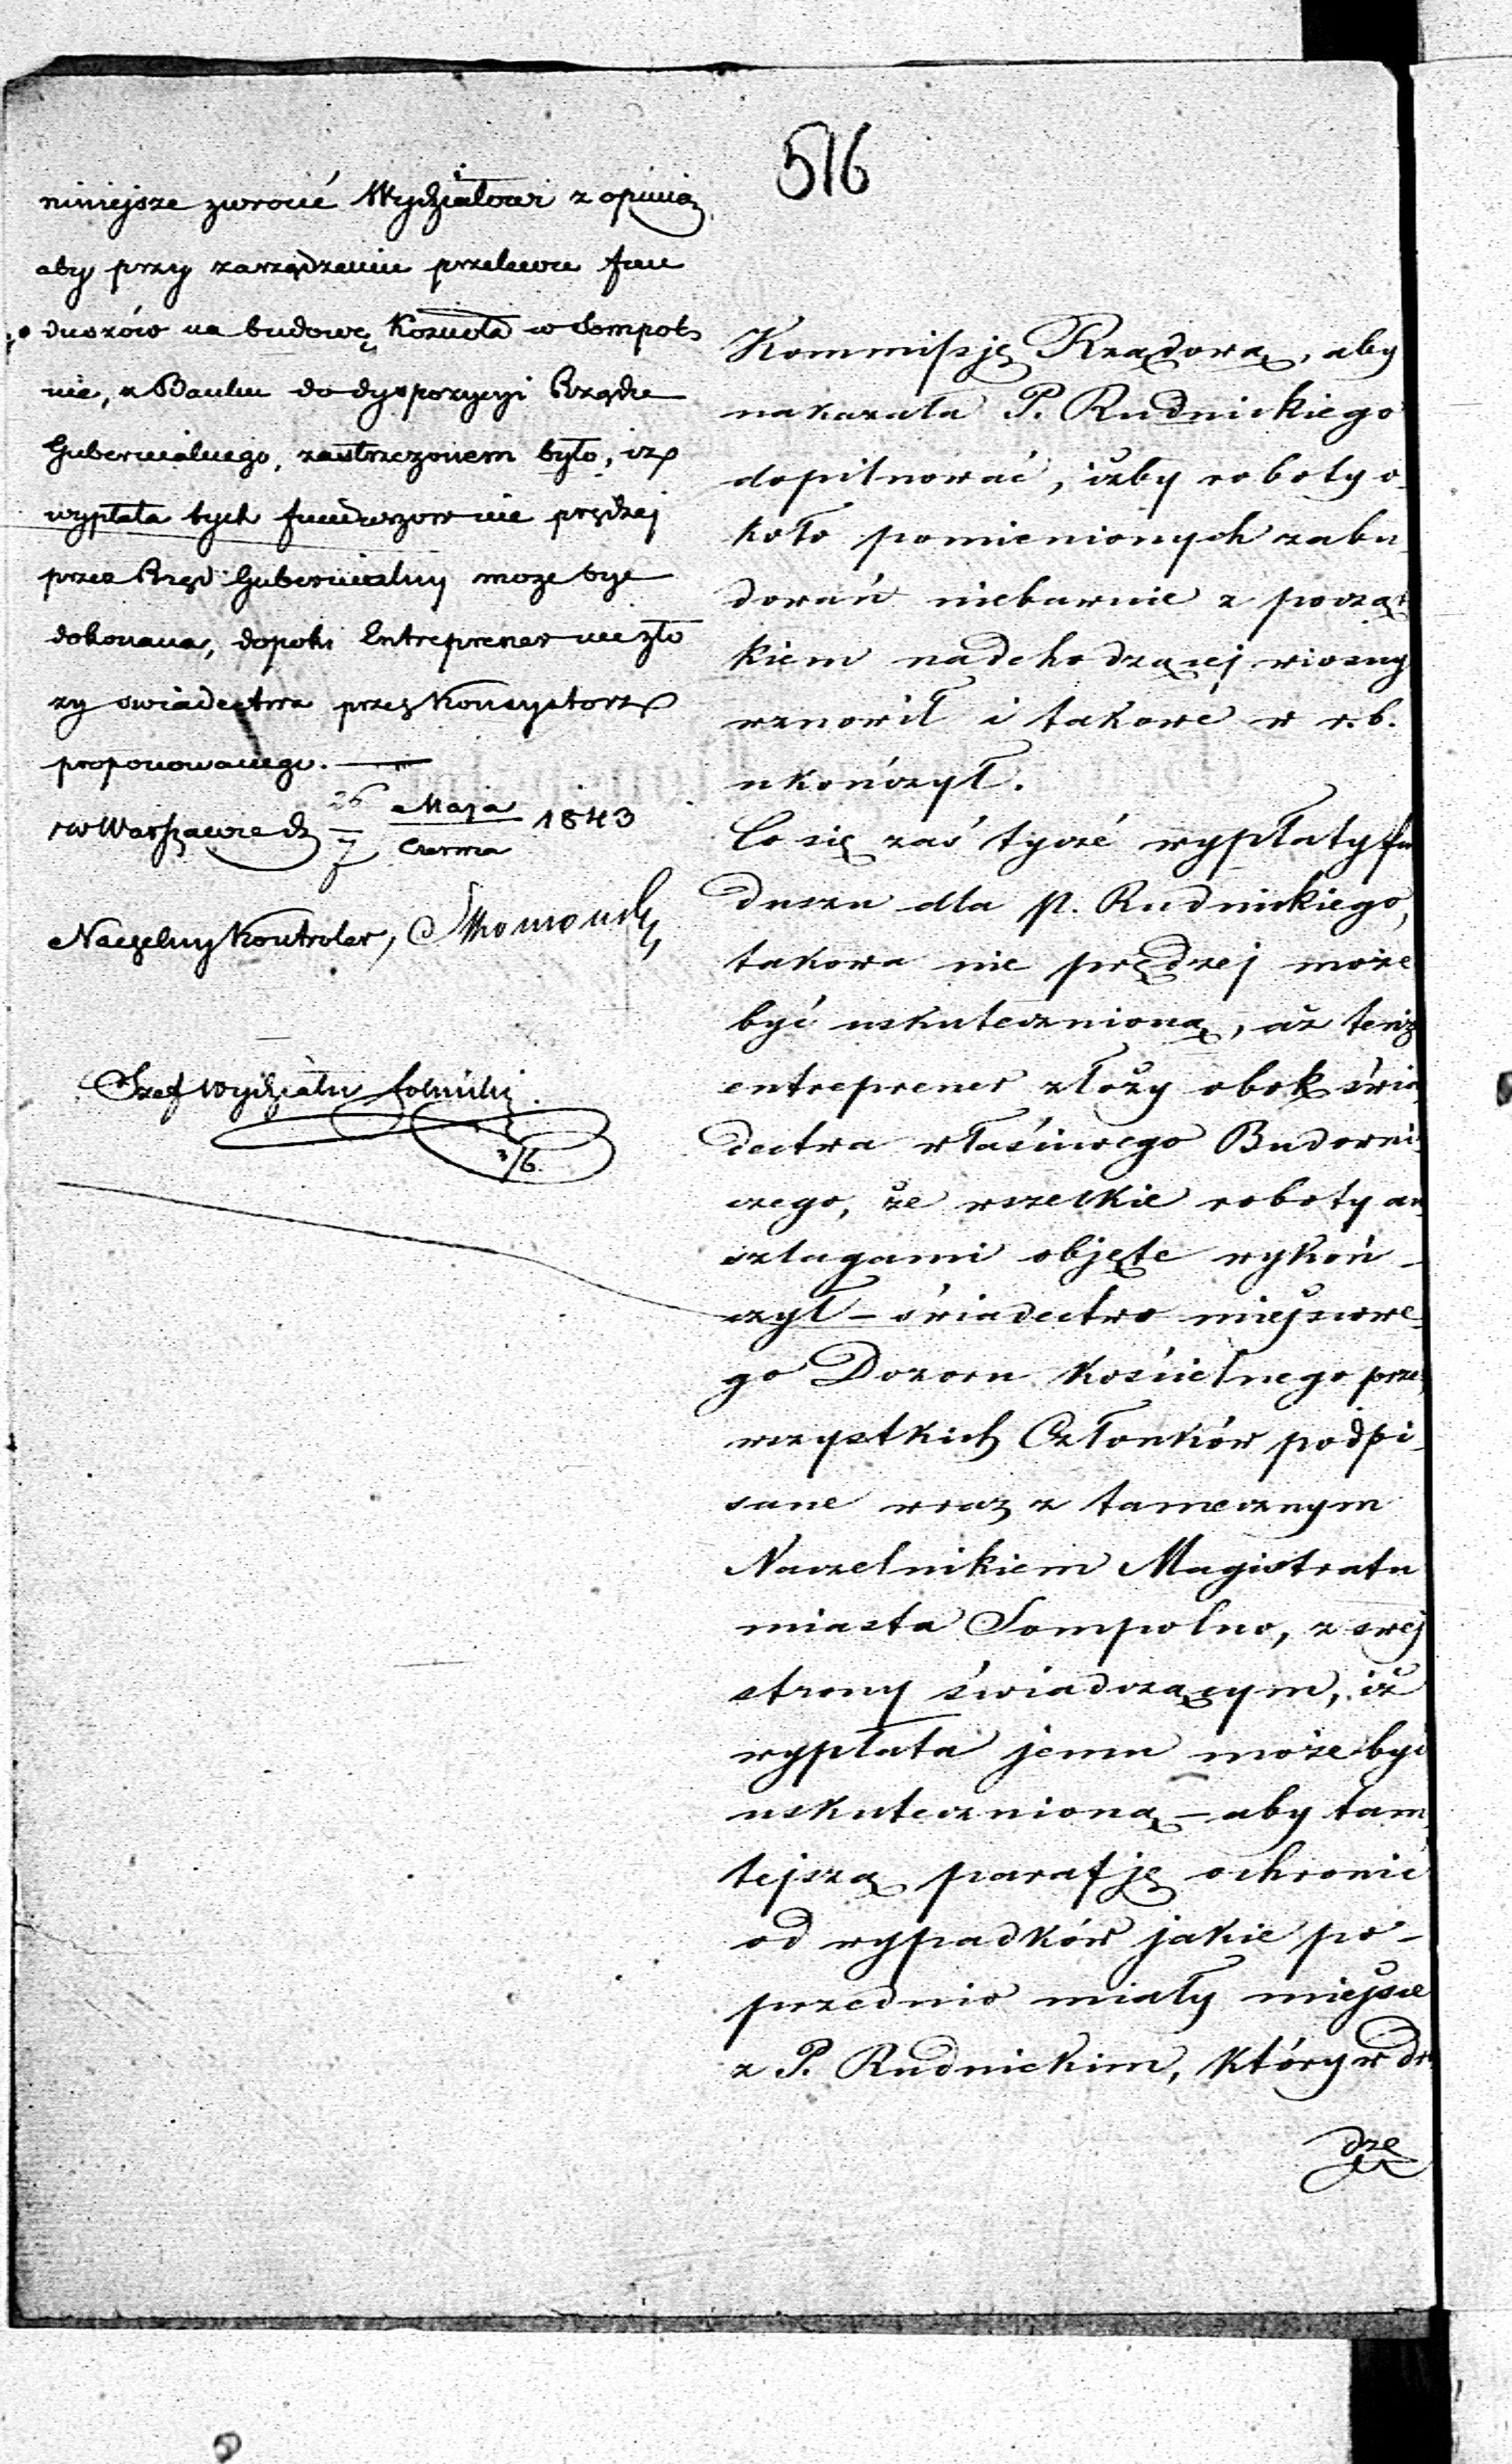 516
niniejsze zwrocić Wydziałowi z opinią
aby przy zarządzeniu przelewu fun
duszów na budowę Koscioła w Sompol
nie, z Banku do dyspozycyi Rządu
Gubernialnego, zastrzezonem było, iz
wypłata tych funduszow nie prędzej
przez Rząd Gubernialny moze byc
dokonana, dopoki Entreprener nie zło
zy swiadectwa przez Konsystorz
proponowanego. —
w Warszawie d 26/7 Maja/Czerwca 1843
Naczelny Kontroler,
Szef Wydziału
3/6.
Kommissję Rządową, aby
nakazała P. Rudnickiego
dopilnować, iżby roboty o-
koło pomienionych zabu-
dowań niebawnie z począt
kiem nadchodzącej wiosny
wznowił i takowe w r. b.
ukończył.
Co się zaś tycze wypłaty fun
duszu dla p. Rudnickiego,
takowa nie prędzej może
być uskutecznioną, aż tenże
entreprener złoży obok świa
dectwa właściwego Budowni-
czego, że wszelkie roboty an
szlagami objęte wykoń-
czył – świadectwo miejscowe-
go Dozoru kościelnego przez
wszystkich Członków podpi-
sane wraz z tamecznym
Naczelnikiem Magistratu
miasta Sompolno, z swej
strony świadczącym, iż
wypłata jemu może być
uskutecznioną – aby tam
tejszą parafję ochronić
od wypadków jakie po-
przednio miały miejsce
z P. Rudnickim, który w dro
dze